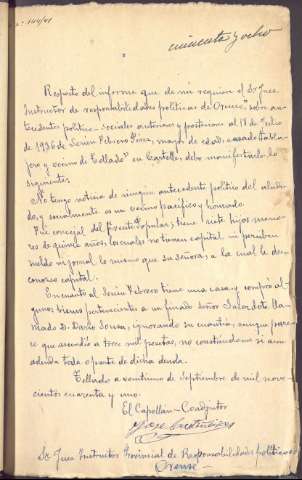 cincuenta y ocho
Respecto del informe que de mi requiere el Sr Juez
Instructor de responsabilidades politicas de Orense, sobre an-
tecedentes politico-sociales anteriores y posteriores al 18 de Julio
de 1936 de Serén Febrero Perez, mayor de edad, casado, tabla-
jero y vecino de Tellado en Cartelle, debo manifestarle lo
siguiente:
No tengo noticia de ningun antecedente politico del aludi-
do, y socialmente es un vecino pacifico y honrado.
Fué concejal del Frente Popular; tiene siete hijos meno-
res de quince años, los cuales no tienen capital ni perciben
sueldo ni jornal lo mismo que su señora, a la cual le des-
conozco capital.
En cuanto al Serén Febrero tiene una casa y compró al-
gunos bienes pertenecientes a un finado señor Sacerdote lla-
mado D. Dario Sousa, ignorando su cuantia, aunque pare-
ce que ascendió a trece mil pesetas, no constándome si aun
adeuda toda o parte de dicha deuda.
Tellado a veintiuno de Septiembre de mil nove-
cientos cuarenta y uno.
El Capellan-Coadjutor
Jose
Sr Juez Instructor Provincial de Responsabilidades politicas de
Orense